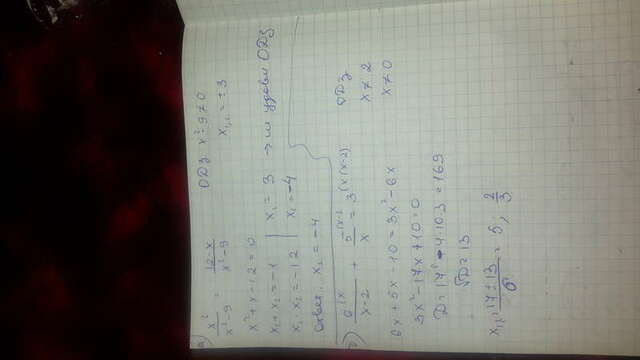 а) x²/(x²-9) = (12-x)/(x²-9) ОДЗ x²-9≠0
x²+x-12=0 x₁,₂ = ±3
x₁+x₂=-1 | x₁=3 → не удовл ОДЗ
x₁·x₂=-12 | x₂=-4
Ответ: x₂=-4
6^(x/(x-2) + 5^(x-2/x = 3^(x(x-2) ОДЗ
x≠2
6x+5x-10=3x²-6x x≠0
3x²-17x+10=0
D=17²-4·10·3=169
√D=13
x₁,₂=(17±13)/6=5; 2/3